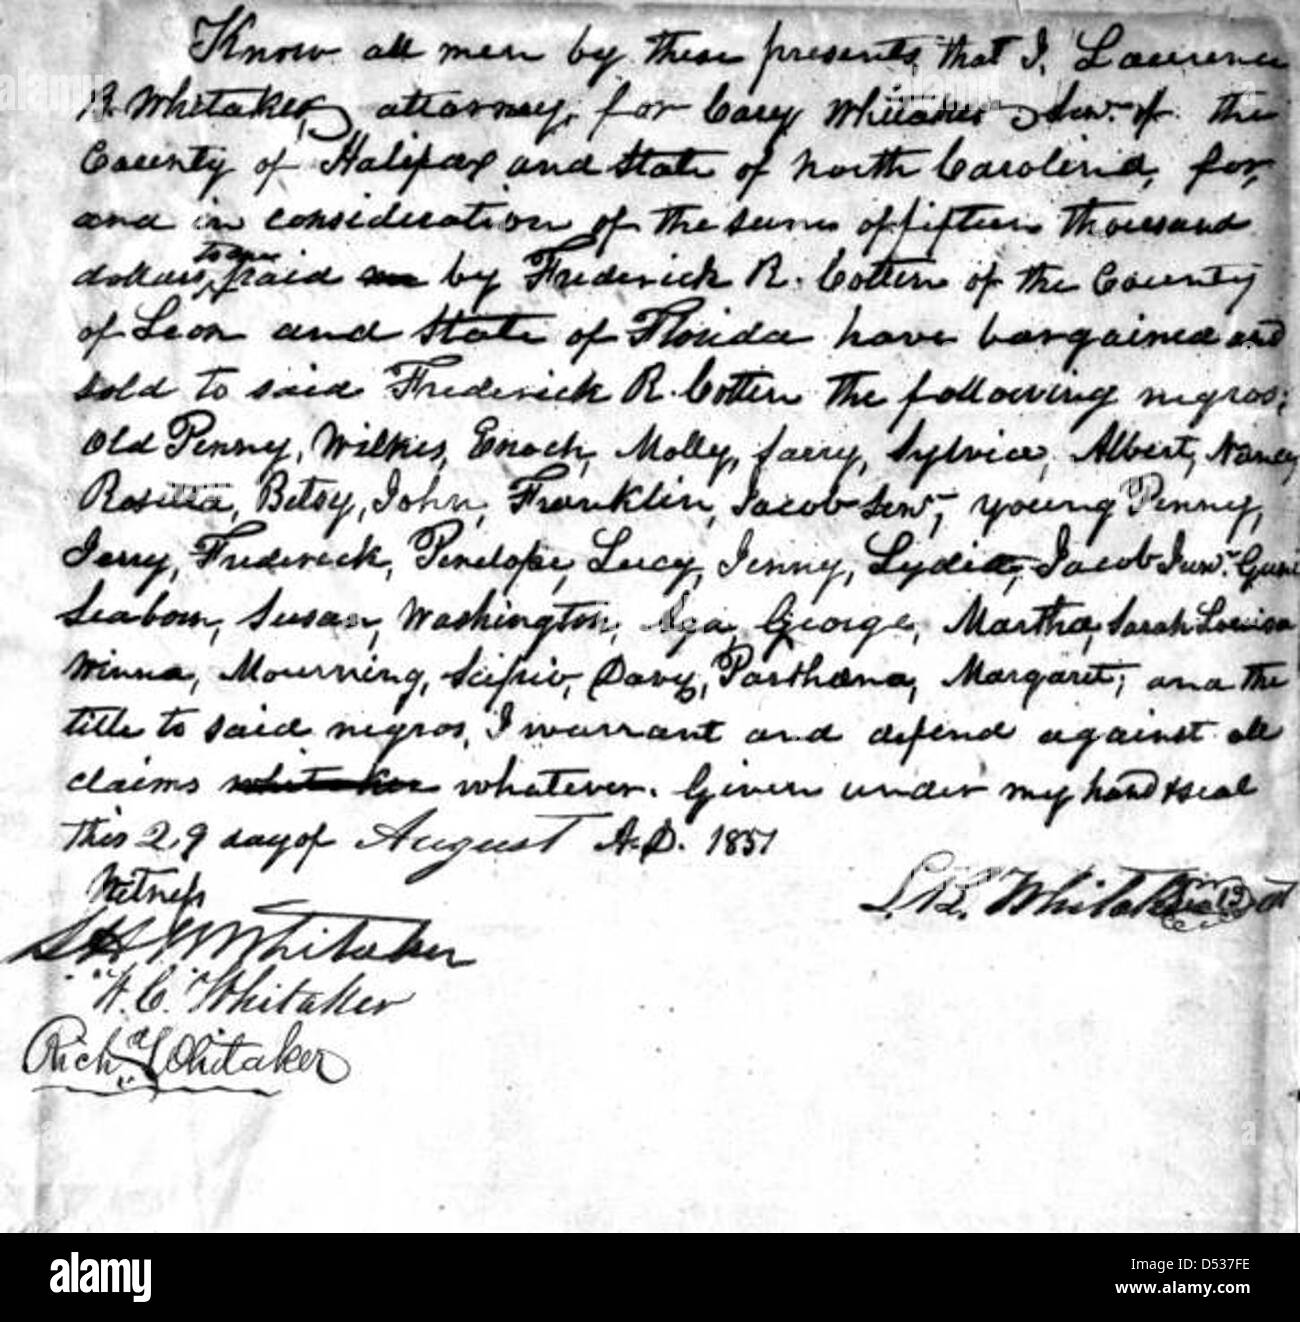 Know all men by these presents that I, Lawrence
Whitaker, attorney, for Cary Whitaker Senr. of the
County of Halifax and State of North Carolina, for,
and in consideration of the sum of fifteen thousand
dollars, to me paid by Frederick R. Cotten of the County
of Leon and State of Florida have bargained and
sold to said Frederick R. Cotten the following negros:
Old Penny, Wilkes, Enoch, Molly, Larry, Sylvia, Albert, Nancy
Rosetta, Betsy, John, Franklin, Jacob Senr, young Penny,
Jerry, Frederick, Penelope, Lucy, Jenny, Lydia, Jacob Junr.
Seaborn, Susan, Washington, George, Martha, Sarah Louisa
Winna, Mourning, Davy, Parthena, Margaret, and the
title to said negros, I warrant and defend against all
claims whatever. Given under my hand & seal
This 29 day of August A.D. 1851
Witness
L. B. Whitaker
Whitaker
H. C. Whitaker
Richd Whitaker
alamy
Image ID: D537FE
www.alamy.com